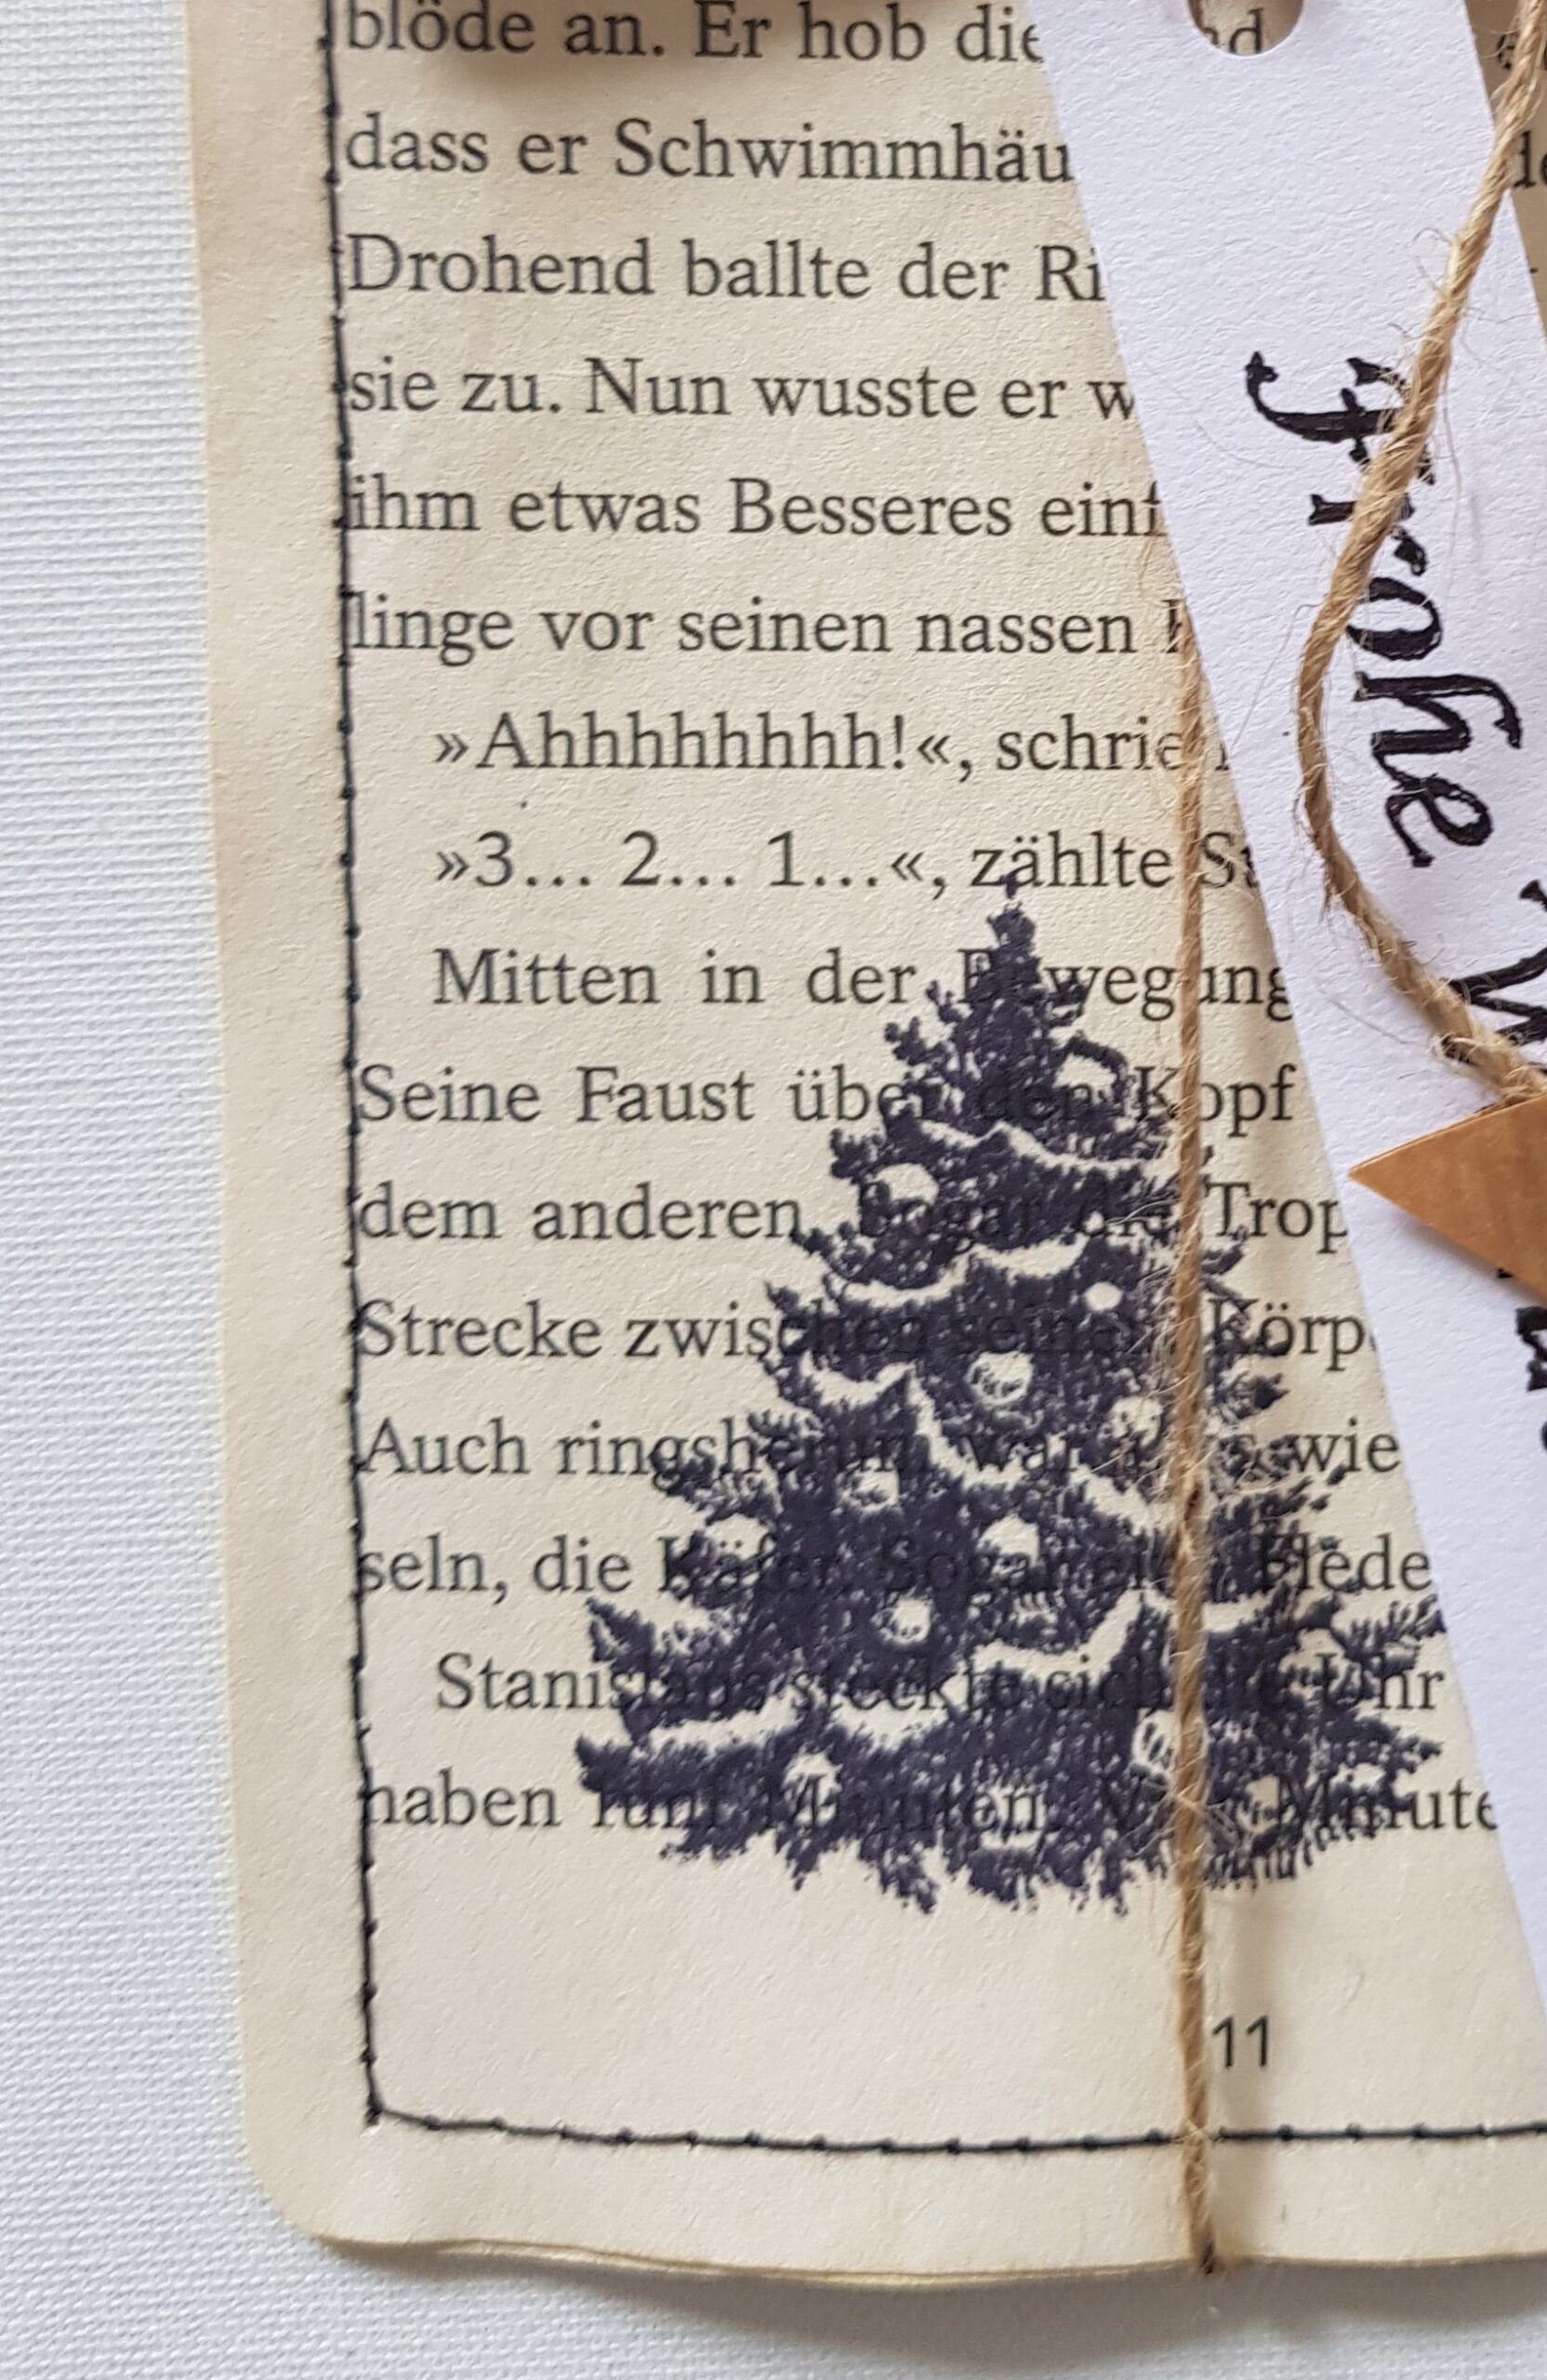 blöde an. Er hob die
dass er Schwimmhäu
Drohend ballte der Ri
sie zu. Nun wusste er w
ihm etwas Besseres einf
linge vor seinen nassen
»Ahhhhhhhhh!«, schrie
»3… 2… 1…«, zählte St
Mitten in der Bewegung
Seine Faust über den Kopf
dem anderen. Sogar die Trop
Strecke zwischen seinem Körpe
Auch ringsherum war alles wie
seln, die Käfer. Sogar eine Flede
Stanislaus steckte sich die Uhr
haben fünf Minuten. Vier Minute
11
Frohe